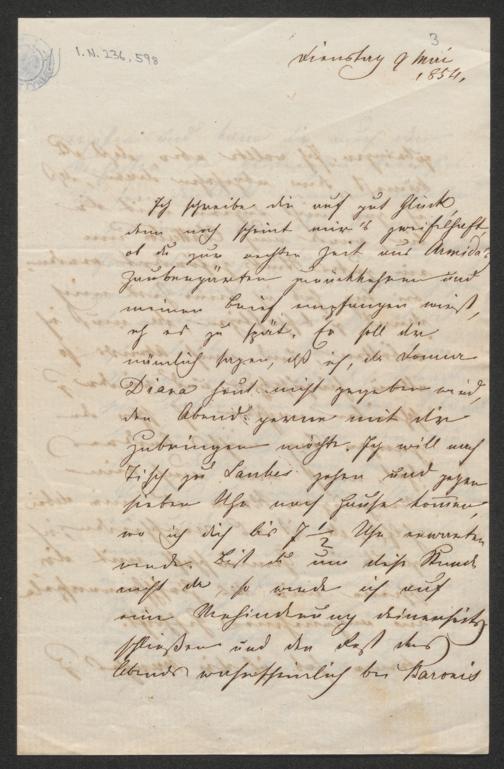 I.N. 236,598
3
Dienstag 9 Mai
1854.
Ich schreibe dir auf gut Glück
denn noch scheint mir's zweifelhaft,
ob du zur rechten Zeit aus Armida's
Zaubergärten zurückkehren und
meinen Brief empfangen wirst,
eh es zu spät. Er soll dir
nämlich sagen, daß ich, da Donna
Diana heut nicht gegeben wird,
den Abend gerne mit dir
zubringen möchte. Ich will nach
Tisch zu Laubes gehen und gegen
sieben Uhr nach Hause kommen,
wo ich dich bis 7 1/2 Uhr erwarten
werde. Bist du um diese Stunde
nicht da so werde ich auf
eine Verhinderung deinerseits
schließen und den Rest des
Abends wahrscheinlich bei Baronis